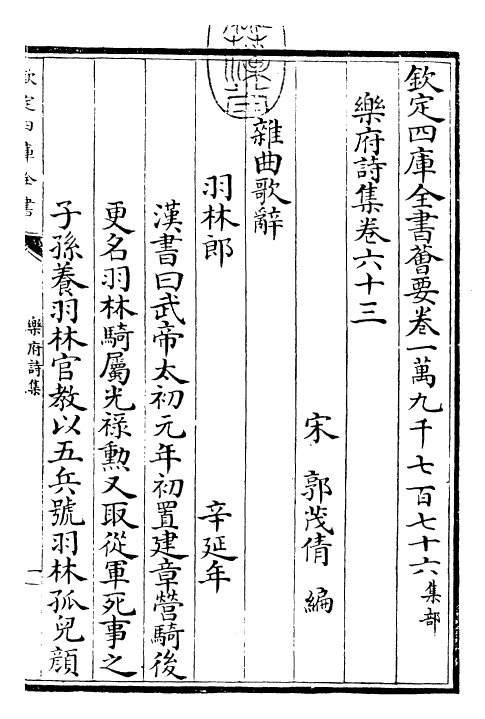 欽定四庫全書薈要卷一萬九千七百七十六集部
樂府詩集卷六十三
宋郭茂倩編
雜曲歌辭
羽林郎辛延年
漢書曰武帝太初元年初置建章營騎後
更名羽林騎屬光祿勲又取從軍死事之
子孫養羽林官教以五兵號羽林孤兒顔
欽定四庫全書
樂府詩集
一